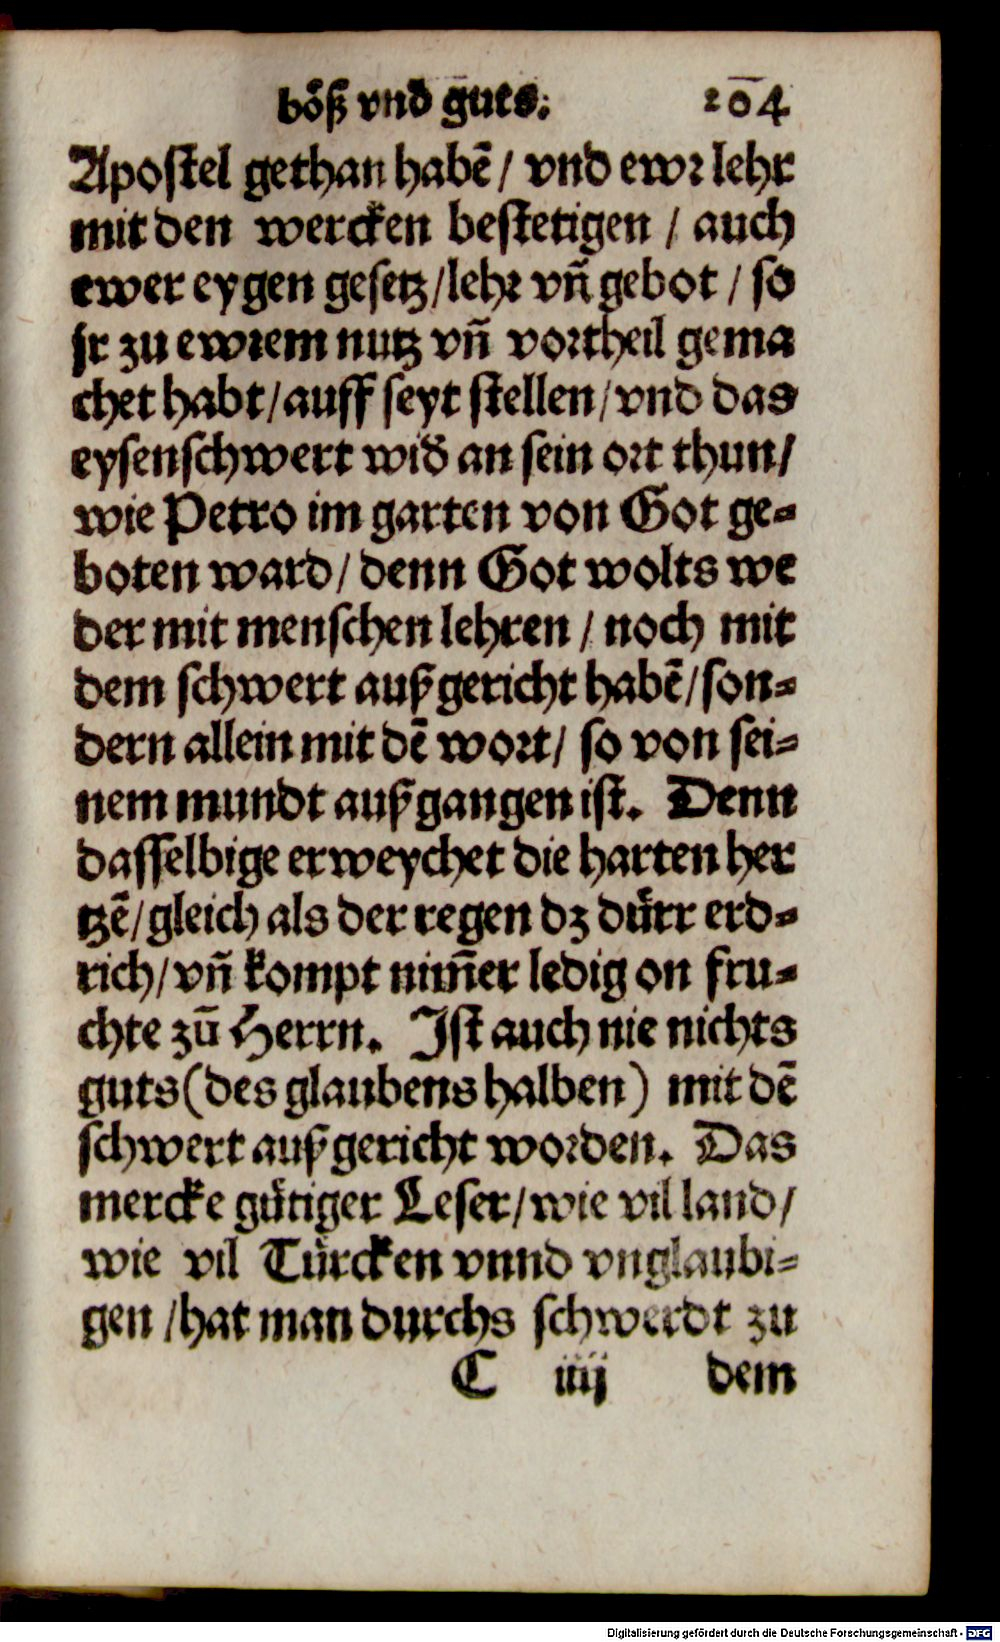 böß vnd guts. 204
Apostel gethan habē / vnd ewr lehr
mit den wercken bestetigen / auch
ewer eygen gesetz / lehr vñ gebot / so
jr zu ewrem nutz vñ vortheil gema
chet habt / auff seyt stellen / vnd das
eysenschwert wid̄ an sein ort thun /
wie Petro im garten von Got ge-
boten ward / denn Got wolts we
der mit menschen lehren / noch mit
dem schwert außgericht habē / son-
dern allein mit dē wort / so von sei-
nem mundt außgangen ist. Denn
dasselbige erweychet die harten her
tzē / gleich als der regen dz dürr erd-
rich / vñ kompt nim̄er ledig on fru-
chte zū Herrn. Ist auch nie nichts
guts (des glaubens halben) mit dē
schwert außgericht worden. Das
mercke gütiger Leser / wie vil land /
wie vil Türcken vnnd vnglaubi-
gen / hat man durchs schwerdt zu
C iiij dem
Digitalisierung gefördert durch die Deutsche Forschungsgemeinschaft - DFG